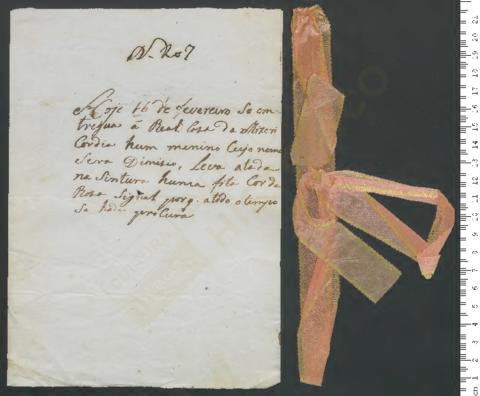 N. 207
Hoje 16 de Fevereiro Se en-
trega á Real Casa da Miseri
Cordia hum menino Cujo nome
Sera Dionisio, Leva atada
na Sintura huma fita Cor de
Rosa Signal porq. atodo otempo
Se hade procurar